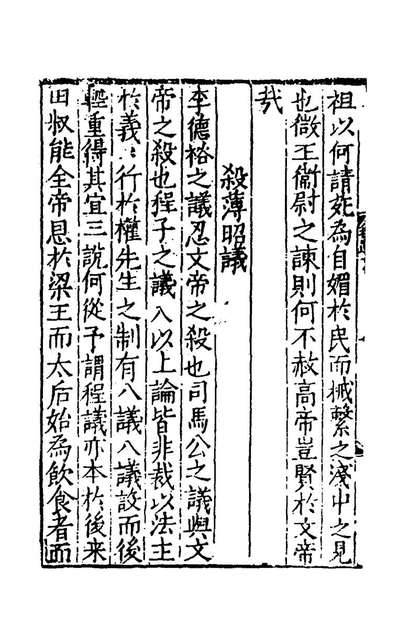 祖以何請死為自媚於民而械繫之淺中之見
也微王衞尉之諫則何不赦高帝豈賢於文帝
㢤
殺薄昭議
李德裕之議忍文帝之殺也司馬公之議與文
帝之殺也程子之議入以上論皆非裁以法主
於義〻行於權先生之制有八議八議設而後
輕重得其宜三說何從予謂程議亦本於後来
田叔能全帝恩於梁王而太后始為飲食者而